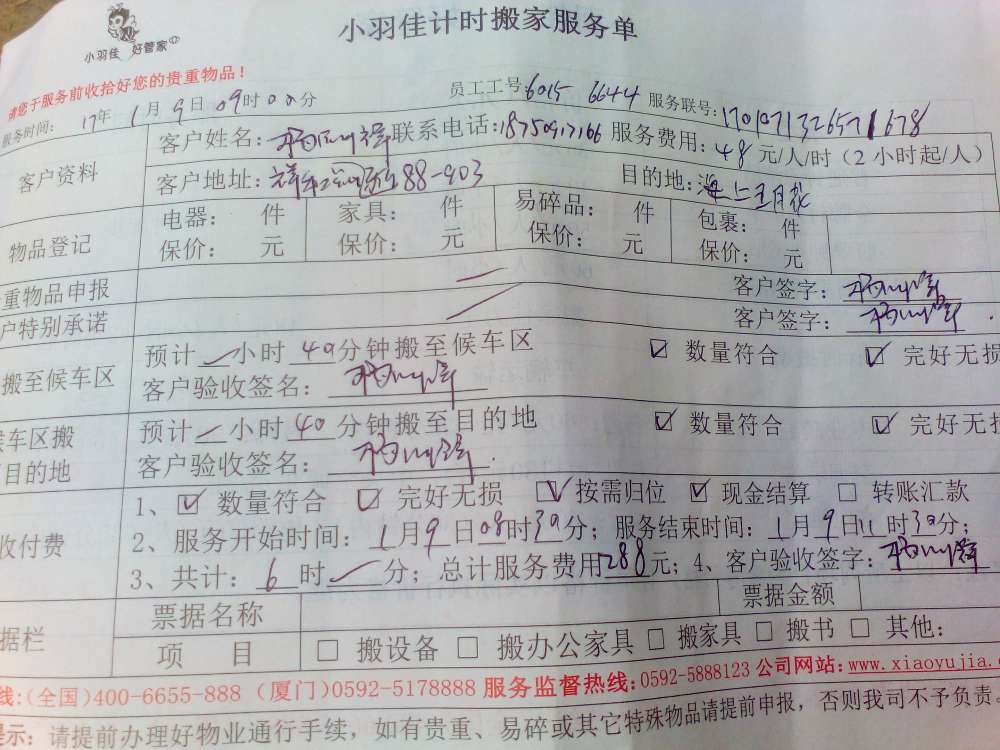 小羽佳 好管家
小羽佳计时搬家服务单
请您于服务前收拾好您的贵重物品！
服务时间： 17年 1月 9日 09时00分 员工工号：6015 6644 服务联号：
客户资料
客户姓名： 联系电话：18750917166 服务费用：48元/人/时（2小时起/人）
客户地址： 88-903 目的地：海上五月花
物品登记
电器： 件 家具： 件 易碎品： 件 包裹： 件
保价： 元 保价： 元 保价： 元 保价： 元
重物品申报 客户签字：
户特别承诺 客户签字：
搬至候车区
预计 小时 40分钟搬至候车区 ☑ 数量符合 ☑ 完好无损
客户验收签名：
候车区搬
目的地
预计 小时 40分钟搬至目的地 ☑ 数量符合 ☑ 完好无损
客户验收签名：
收付费
1、☑ 数量符合 ☑ 完好无损 ☑ 按需归位 ☑ 现金结算 □ 转账汇款
2、服务开始时间：1月9日08时30分；服务结束时间：1月9日11时30分；
3、共计：6时 分；总计服务费用288元；4、客户验收签字：
据栏
票据名称 票据金额
项 目 □ 搬设备 □ 搬办公家具 □ 搬家具 □ 搬书 □ 其他：
线：(全国)400-6655-888（厦门)0592-5178888 服务监督热线：0592-5888123 公司网站：www.xiaoyujia.c
提示：请提前办理好物业通行手续，如有贵重、易碎或其它特殊物品请提前申报，否则我司不予负责。